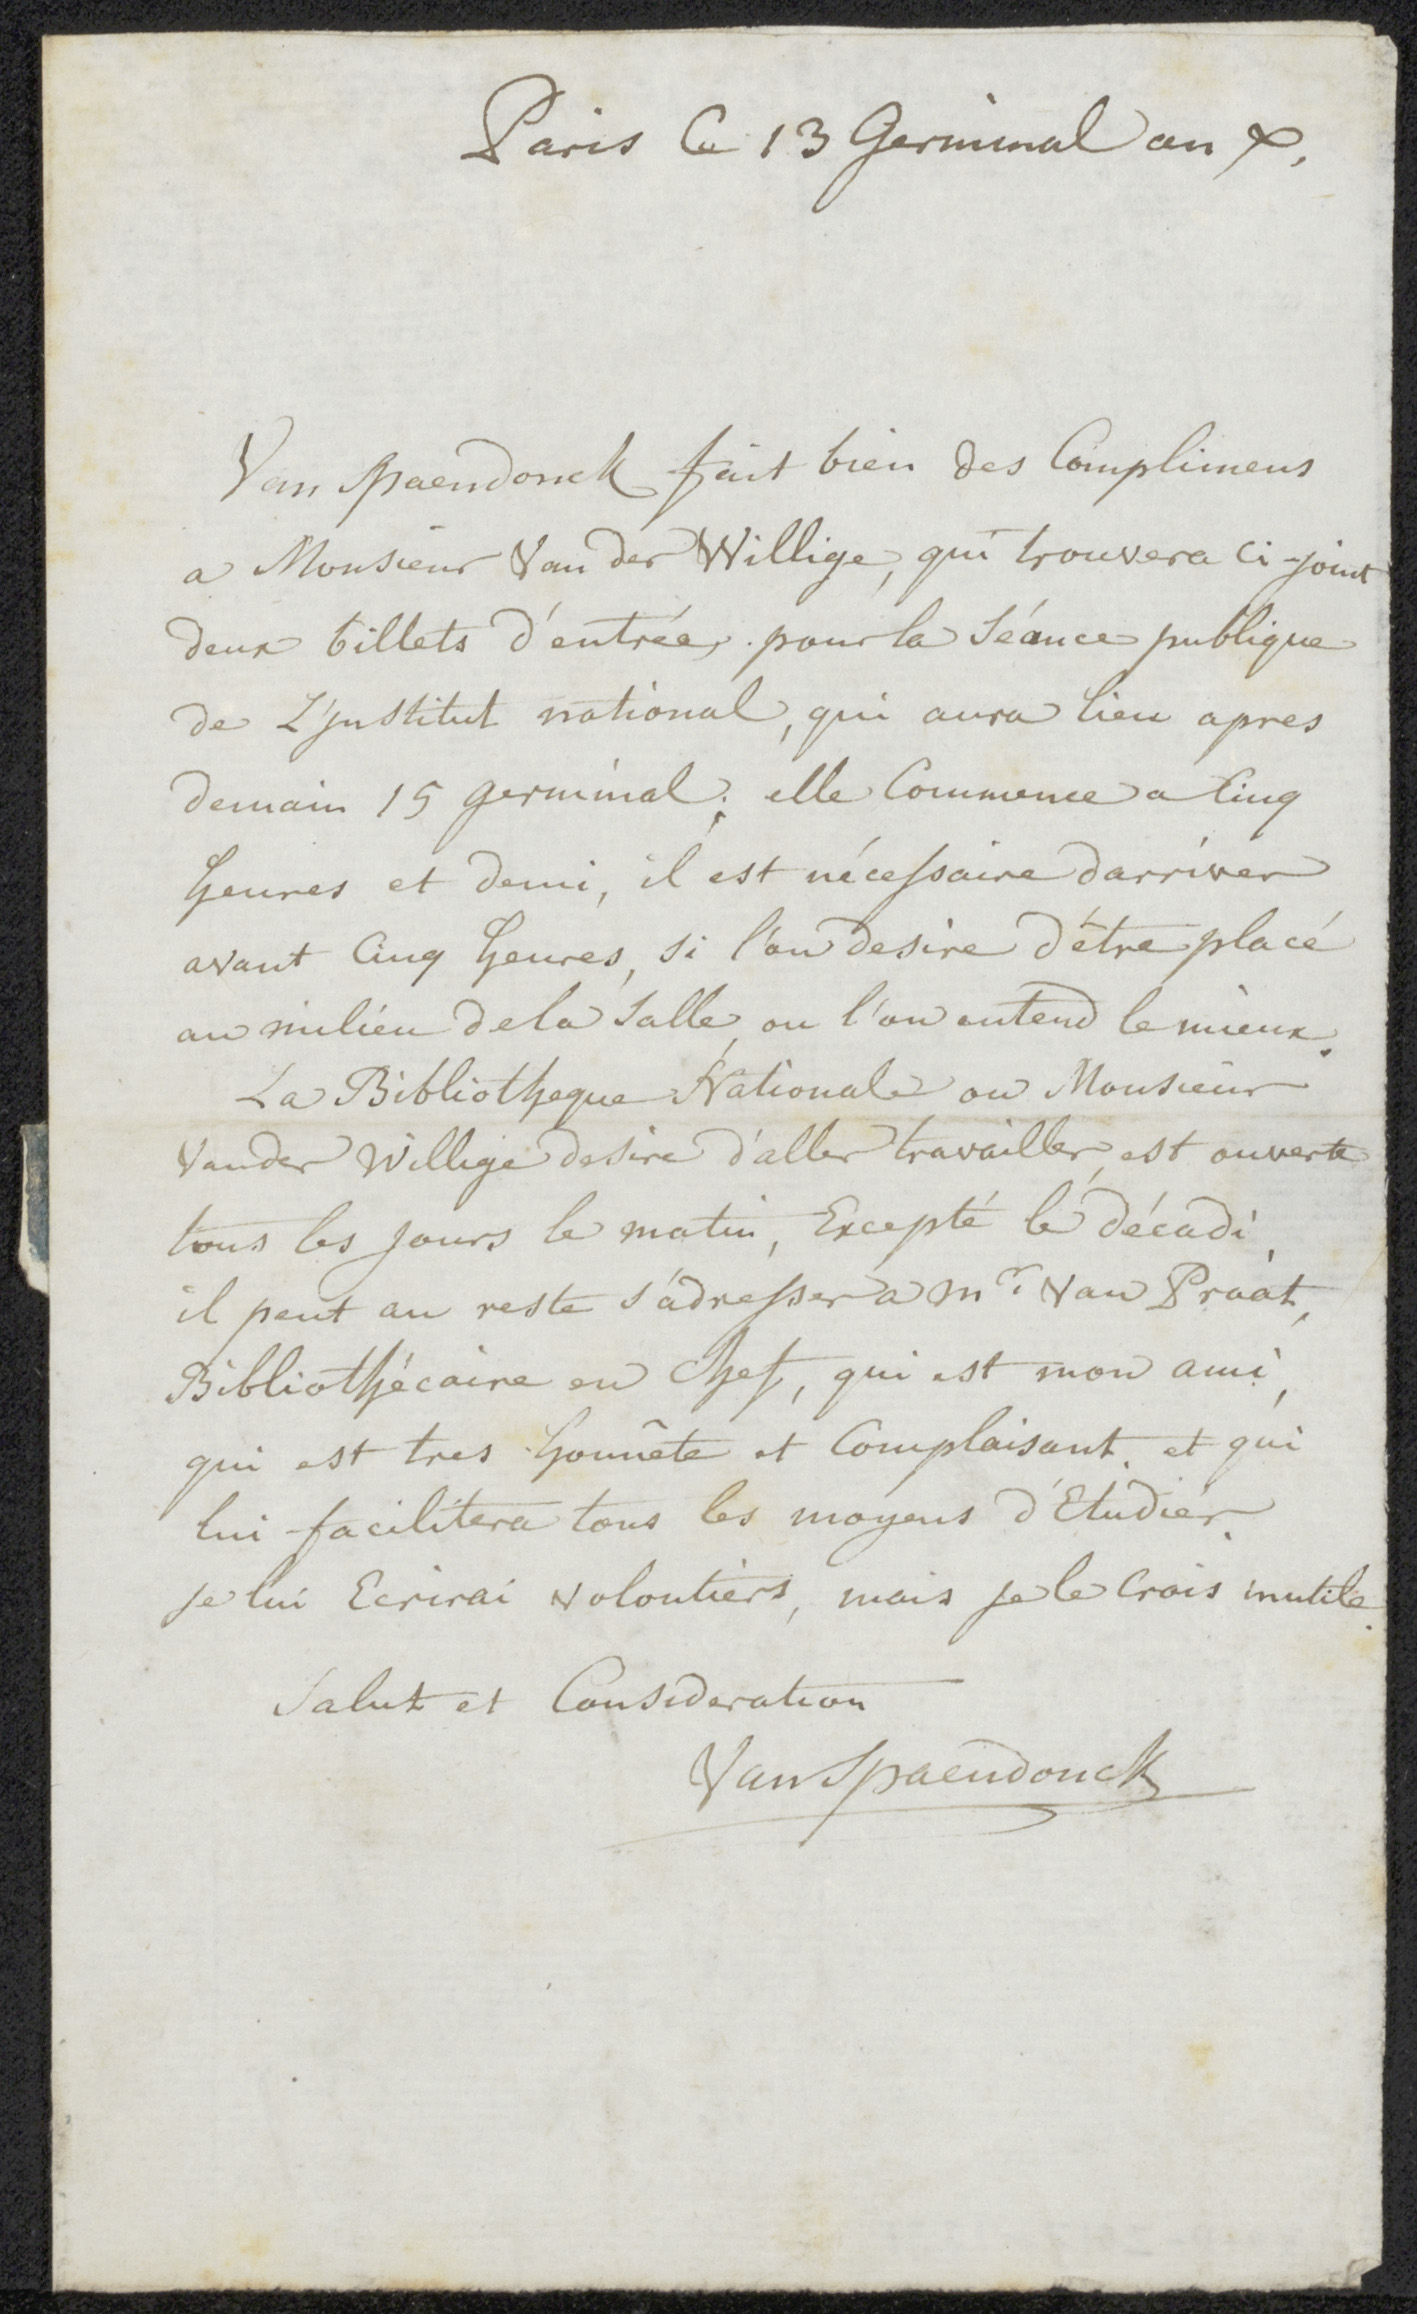 Paris Ce 13 Germinal an X,
Van Spaendonck fait bien des Complimens
a Monsieur Van der Willige, qui trouvera ci-joint
deux billets d'entrée, pour la Séance publique
de L'jnstitut national, qui aura lieu apres
demain 15 germinal; elle Commence a Cinq
heures et demi, il est nécessaire darriver
avant Cinq heures, si l'on desire d'être placé
au milieu dela Salle, ou l'on entend le mieux.
La Bibliotheque Nationale ou Monsieur
Vander Willige desire d'aller travailler, est ouverte
tous les jours le matin, Excepté le décadi,
il peut au reste s'adresser a Mr Van Praat,
Bibliothécaire en Chef, qui est mon ami,
qui est tres honnête et Complaisant, et qui
lui facilitera tous les moyens d'Etudier.
je lui Ecrirai volontiers, mais je le Crois inutile.
Salut et Consideration
Van Spaendonck